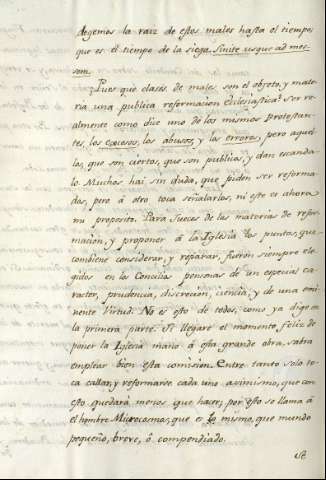 degemos la raiz de estos males hasta el tiempo,
que es el tiempo de la siega. Sinite usque ad mes-
sem.
Pues que clases de males son el objeto, y mate-
ria una publica reformacion Eclesiastica? Ser re-
almente como dice uno de los mismos protestan-
tes, los excesos, los abusos, y las errores, pero aque-
los, que son ciertos, que son publicos, y dan escanda-
lo. Muchos hai sin duda, que piden ser reforma-
das, pero á otro toca señalarlos, ni este es ahora
mi proposito. Para Jueces de las materias de refor-
macion, y proponer á la Iglesia los puntos, que
combiene considerar, y reparar, fueron siempre ele-
gidos en los Concilios personas de un especial ca-
racter, prudencia, discrecion, ciencia, y de una emi-
nente virtud. No es esto de todos, como ya digo en
la primera parte. Si llegare el momento, feliz de
poner la Iglesia mano á esta grande obra, sabra
emplear bien esta comision. Entre tanto solo to-
ca callar, y reformarse cada uno asimismo, que con
esto quedará menos que hacer; por esto se llama á
el hombre Microcosmos, que es lo mismo, que mundo
pequeño, breve, ó compendiado.